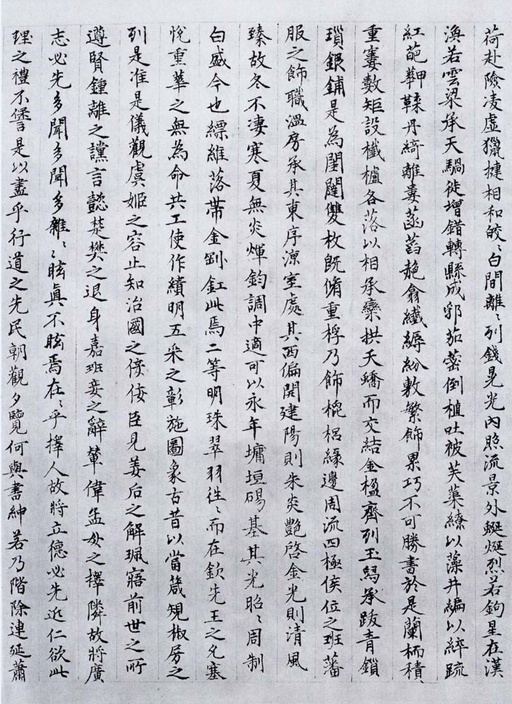 荷赴險凌虛獵揵相和皎〻白間離〻列錢晃光內照流景外烻烈若鉤星在漢
渙若雲梁承天騧徙增錯轉縣成郛茄蔤倒植吐被芙蕖繚以藻井編以綷疏
紅葩鞢丹綺離婁菡萏赩翕纖縟紛敷繁飾累巧不可勝書於是蘭栭積
重窶數矩設櫼櫨各落以相承欒拱夭蟜而交結金楹齊列玉舄承跋青鎖
瑣銀鋪是為閨闥雙枚既脩重桴乃飾梠緣邊周流四極侯位之班藩
服之飾職溫房承其東序涼室處其西偏開建陽則朱炎艷啓金光則清風
臻故冬不淒寒夏無炎煇鈞調中適可以永年墉垣碭基其光昭〻周制
白盛今也縹維落帶金釧釭此焉二等明珠翠羽往〻而在欽先王之允塞
悅重華之無為命共工使作繢明五采之彰施圖象古昔以當箴規椒房之
列是准是儀觀虞姬之容止知治國之佞臣見姜后之解珮寤前世之所
遵賢鍾離之讜言懿楚樊之退身嘉班妾之辭輦偉孟母之擇隣故將廣
志必先多聞多聞多雜〻眩真不眩焉在〻乎擇人故將立德必先近仁欲此
理之禮不諐是以盡乎行道之先民朝觀夕覽何與書紳若乃階除連延蕭